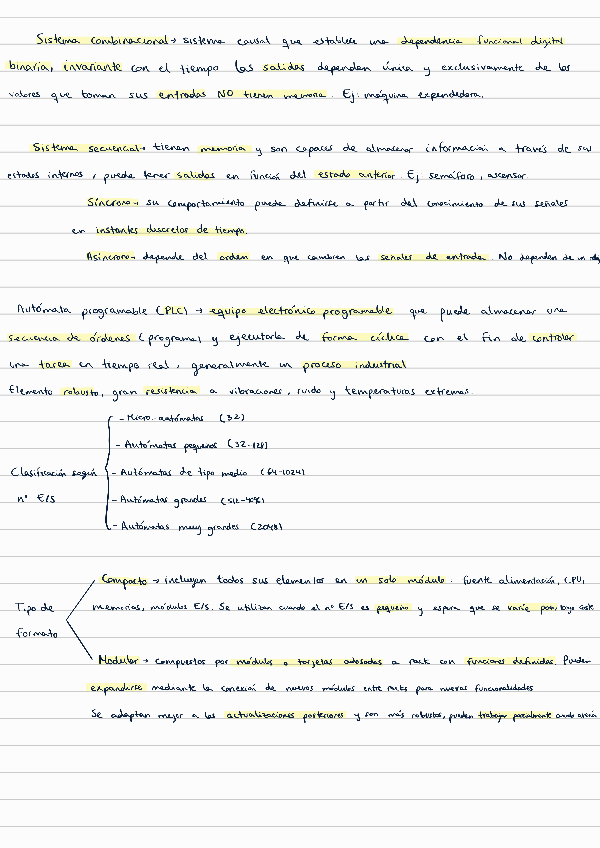 Sistema combinacional → sistema causal que establece una dependencia funcional digital
binaria, invariante con el tiempo las salidas dependen única y exclusivamente de los
valores que toman sus entradas NO tienen memoria. Ej: máquina expendedora.
Sistema secuencial → tienen memoria y son capaces de almacenar información a través de sus
estados internos, puede tener salidas en función del estado anterior. Ej semáforo, ascensor
Síncrono → su comportamiento puede definirse a partir del conocimiento de sus señales
en instantes discretos de tiempo.
Asíncrono → depende del orden en que cambien las señales de entrada. No dependen de un
Autómata programable (PLC) → equipo electrónico programable que puede almacenar una
secuencia de órdenes (programa) y ejecutarla de forma cíclica con el fin de controlar
una tarea en tiempo real, generalmente un proceso industrial
Elemento robusto, gran resistencia a vibraciones, ruido y temperaturas extremas.
Clasificación según
nº E/S
- Micro autómatas (32)
- Autómatas pequeños (32-128)
- Autómatas de tipo medio (64-1024)
- Autómatas grandes (512-4096)
- Autómatas muy grandes (2048)
Tipo de
formato
Compacto → incluyen todos sus elementos en un solo módulo. fuente alimentación, CPU,
memorias, módulos E/S. Se utilizan cuando el nº E/S es pequeño y espera que se varíe poco, bajo coste
Modular → Compuestos por módulos o tarjetas adosadas a rack con funciones definidas. Pueden
expandirse mediante la conexión de nuevos módulos entre racks para nuevas funcionalidades
Se adaptan mejor a las actualizaciones posteriores y son más robustos, pueden trabajar parcialmente ante avería